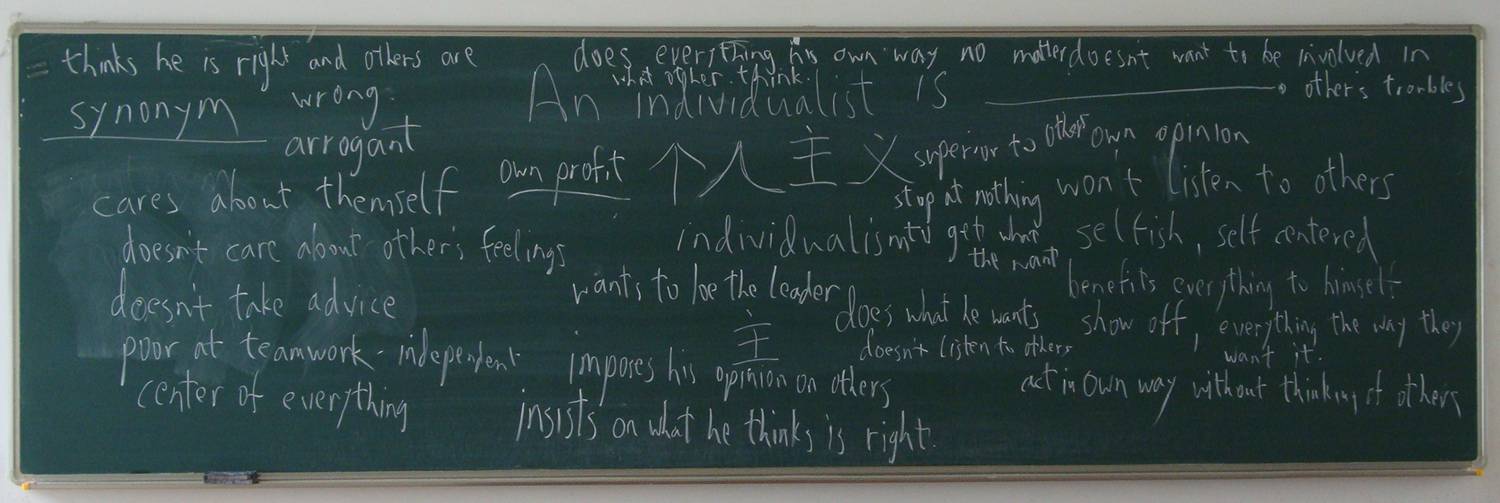 thinks he is right and others are
wrong.
synonym
arrogant
cares about themself
doesn't care about other's feelings
doesn't take advice
poor at teamwork - independent
center of everything
does everything his own way no matter
what other think.
An individualist is
own profit
个人主义
individualism
wants to be the leader
主
imposes his opinion on others
insists on what he thinks is right.
superior to others
stop at nothing
to get what
the want
does what he wants
doesn't listen to others
doesn't want to be involved in
other's troubles
own opinion
won't listen to others
selfish, self centered
benefits everything to himself
show off, everything the way they
want it.
act in own way without thinking of others